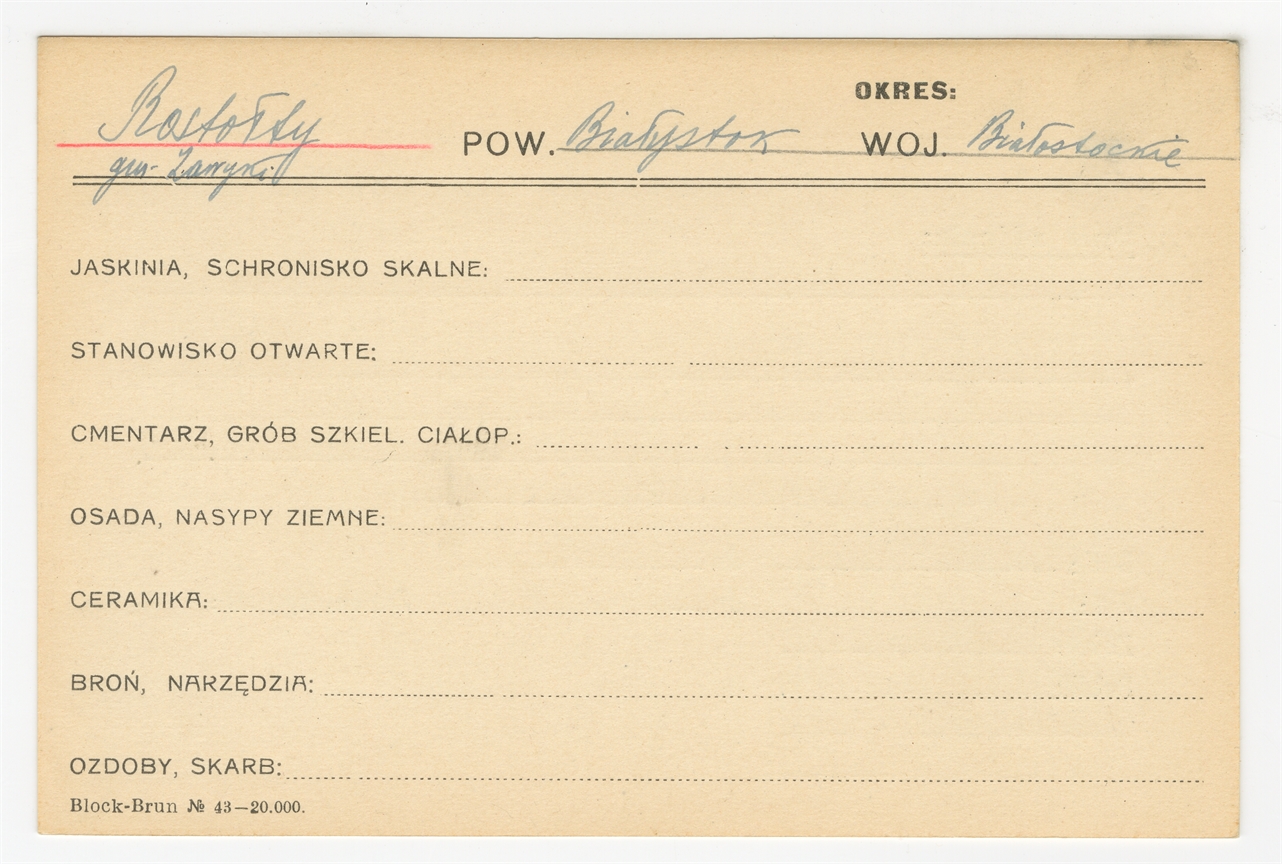 OKRES:
Rostołty POW. Białystok WOJ. Białostockie
gm. Zawyki
JASKINIA, SCHRONISKO SKALNE:
STANOWISKO OTWARTE:
CMENTARZ, GRÓB SZKIEL. CIAŁOP.:
OSADA, NASYPY ZIEMNE:
CERAMIKA:
BROŃ, NARZĘDZIA:
OZDOBY, SKARB:
Block-Brun № 43—20.000.